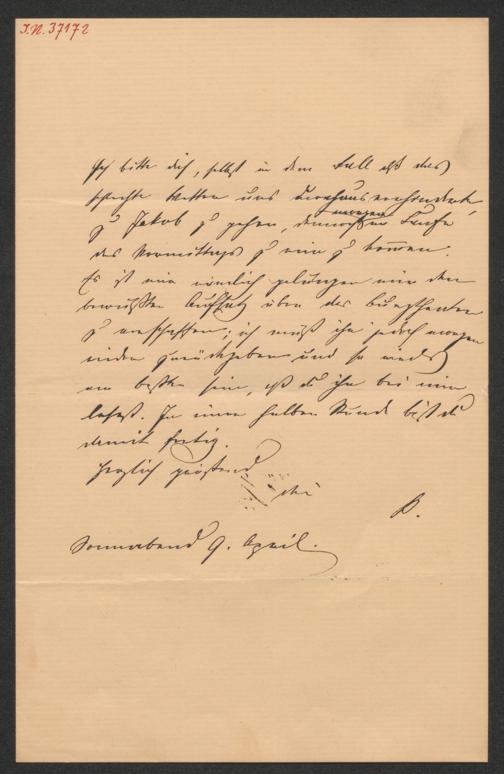 I.N. 37172
Ich bitte dich, selbst in dem Fall daß das
schlechte Wetter uns durchaus verhinderte
morgen
zu Jakob zu gehen, dennoch im Laufe
des Vormittags zu mir zu kommen.
Es ist mir nämlich gelungen mir den
bewußten Aufsatz über das Burgtheater
zu verschaffen; ich muß ihn jedoch morgen
wieder zurückgeben und so wird es
am besten sein, daß du ihn bei mir
liesest. In einer halben Stunde bist du
damit fertig.
Herzlich grüßend
dein
B.
Sonnabend 9. April.